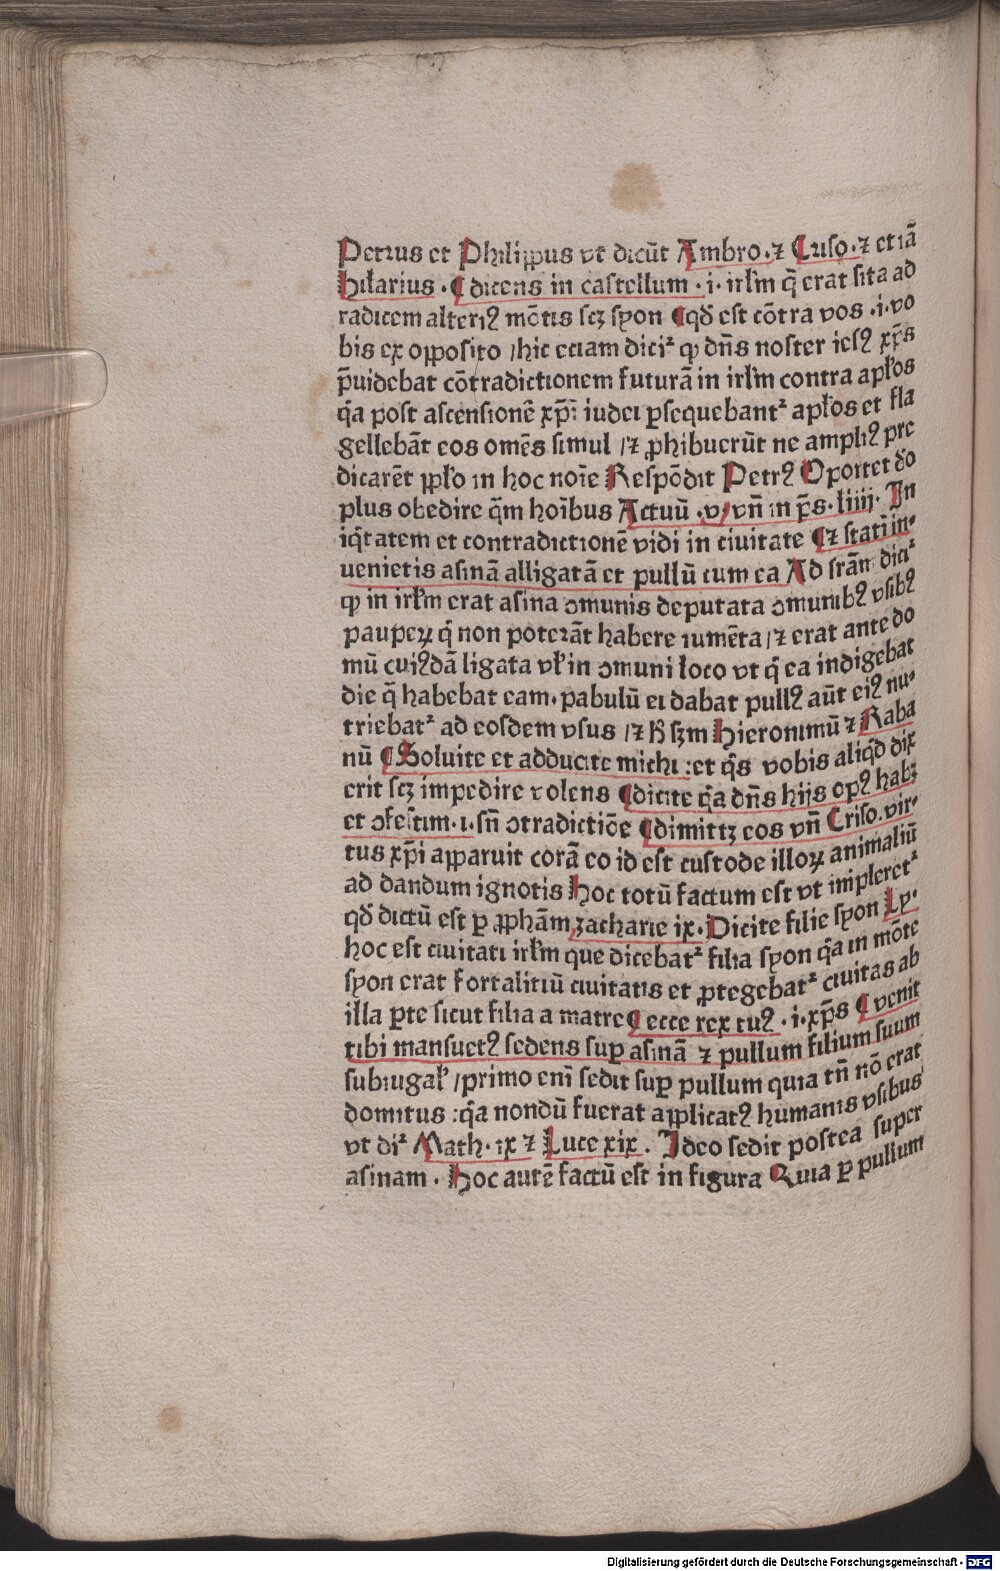 Petrus et Philippus vt dicūt Ambro. ⁊ Criso. ⁊ etiā
Hilarius . ¶ dicens in castellum . i . irl̄m q̄ erat sita ad
radicem alteriꝰ mōtis scꝫ syon ¶ qd̄ est cōtra vos .i. vo
bis ex opposito / hic eciam dicit᷑ ꝙ dn̄s noster iesꝰ xp̄s
p̄uidebat cōtradictionem futurā in irl̄m contra apl̄os
q̄a post ascensionē xp̄i iudei ꝑsequebant᷑ apl̄os et fla
gellebāt eos omēs simul / ⁊ ꝓhibuerūt ne ampliꝰ pre
dicarēt ipl̄o in hoc noīe Respōdit Petrꝰ Oportet dō
plus obedire q̄m hoībus Actuū .v / vn̄ in p̄s. liiij. In
iq̄tatem et contradictionē vidi in ciuitate ¶ ⁊ statī in-
uenietis asinā alligatā et pullū cum ea Ad srān dicit᷑
ꝙ in irl̄m erat asina ↄmunis deputata ↄmunibꝰ vsibꝰ
pauperꝝ q̄ non poterāt habere iumēta / ⁊ erat ante do
mū cuiꝰdā ligata vl̄ in ↄmuni loco vt q̄ ea indigebat
die q̄ habebat eam. pabulū ei dabat pullꝰ aūt eiꝰ nu-
triebat᷑ ad eosdem vsus / ⁊ h̄ sꝫm Hieronimū ⁊ Raba
nū ¶ Soluite et adducite michi : et q̄s vobis aliq̄d dix
erit scꝫ impedire volens ¶ dicite q̄a dn̄s hijs opꝰ habꝫ
et ↄfestim . i . sn̄ ↄtradictiōe ¶ dimittꝫ eos vn̄ Criso. vir-
tus xp̄i apparuit corā eo id est custode illoꝝ animaliū
ad dandum ignotis Hoc totū factum est vt impleret᷑
qd̄ dictū est ꝑ ꝓphām zacharie ix. Dicite filie syon Ly.
hoc est ciuitati irl̄m que dicebat᷑ filia syon q̄a in mōte
syon erat fortalitiū ciuitatis et ꝓtegebat᷑ ciuitas ab
illa ꝑte sicut filia a matre ¶ ecce rex tuꝰ . i . xp̄s ¶ venit
tibi mansuetꝰ sedens suꝑ asinā ⁊ pullum filium suum
subiugal̄ / primo enī sedit suꝑ pullum quia tn̄ nō erat
domitus : q̄a nondū fuerat applicatꝰ humanis vsibus
vt dr᷑ Math. ix ⁊ Luce xix . Ideo sedit postea super
asinam . Hoc autē factū est in figura Quia ꝑ pullum
Digitalisierung gefördert durch die Deutsche Forschungsgemeinschaft - DFG